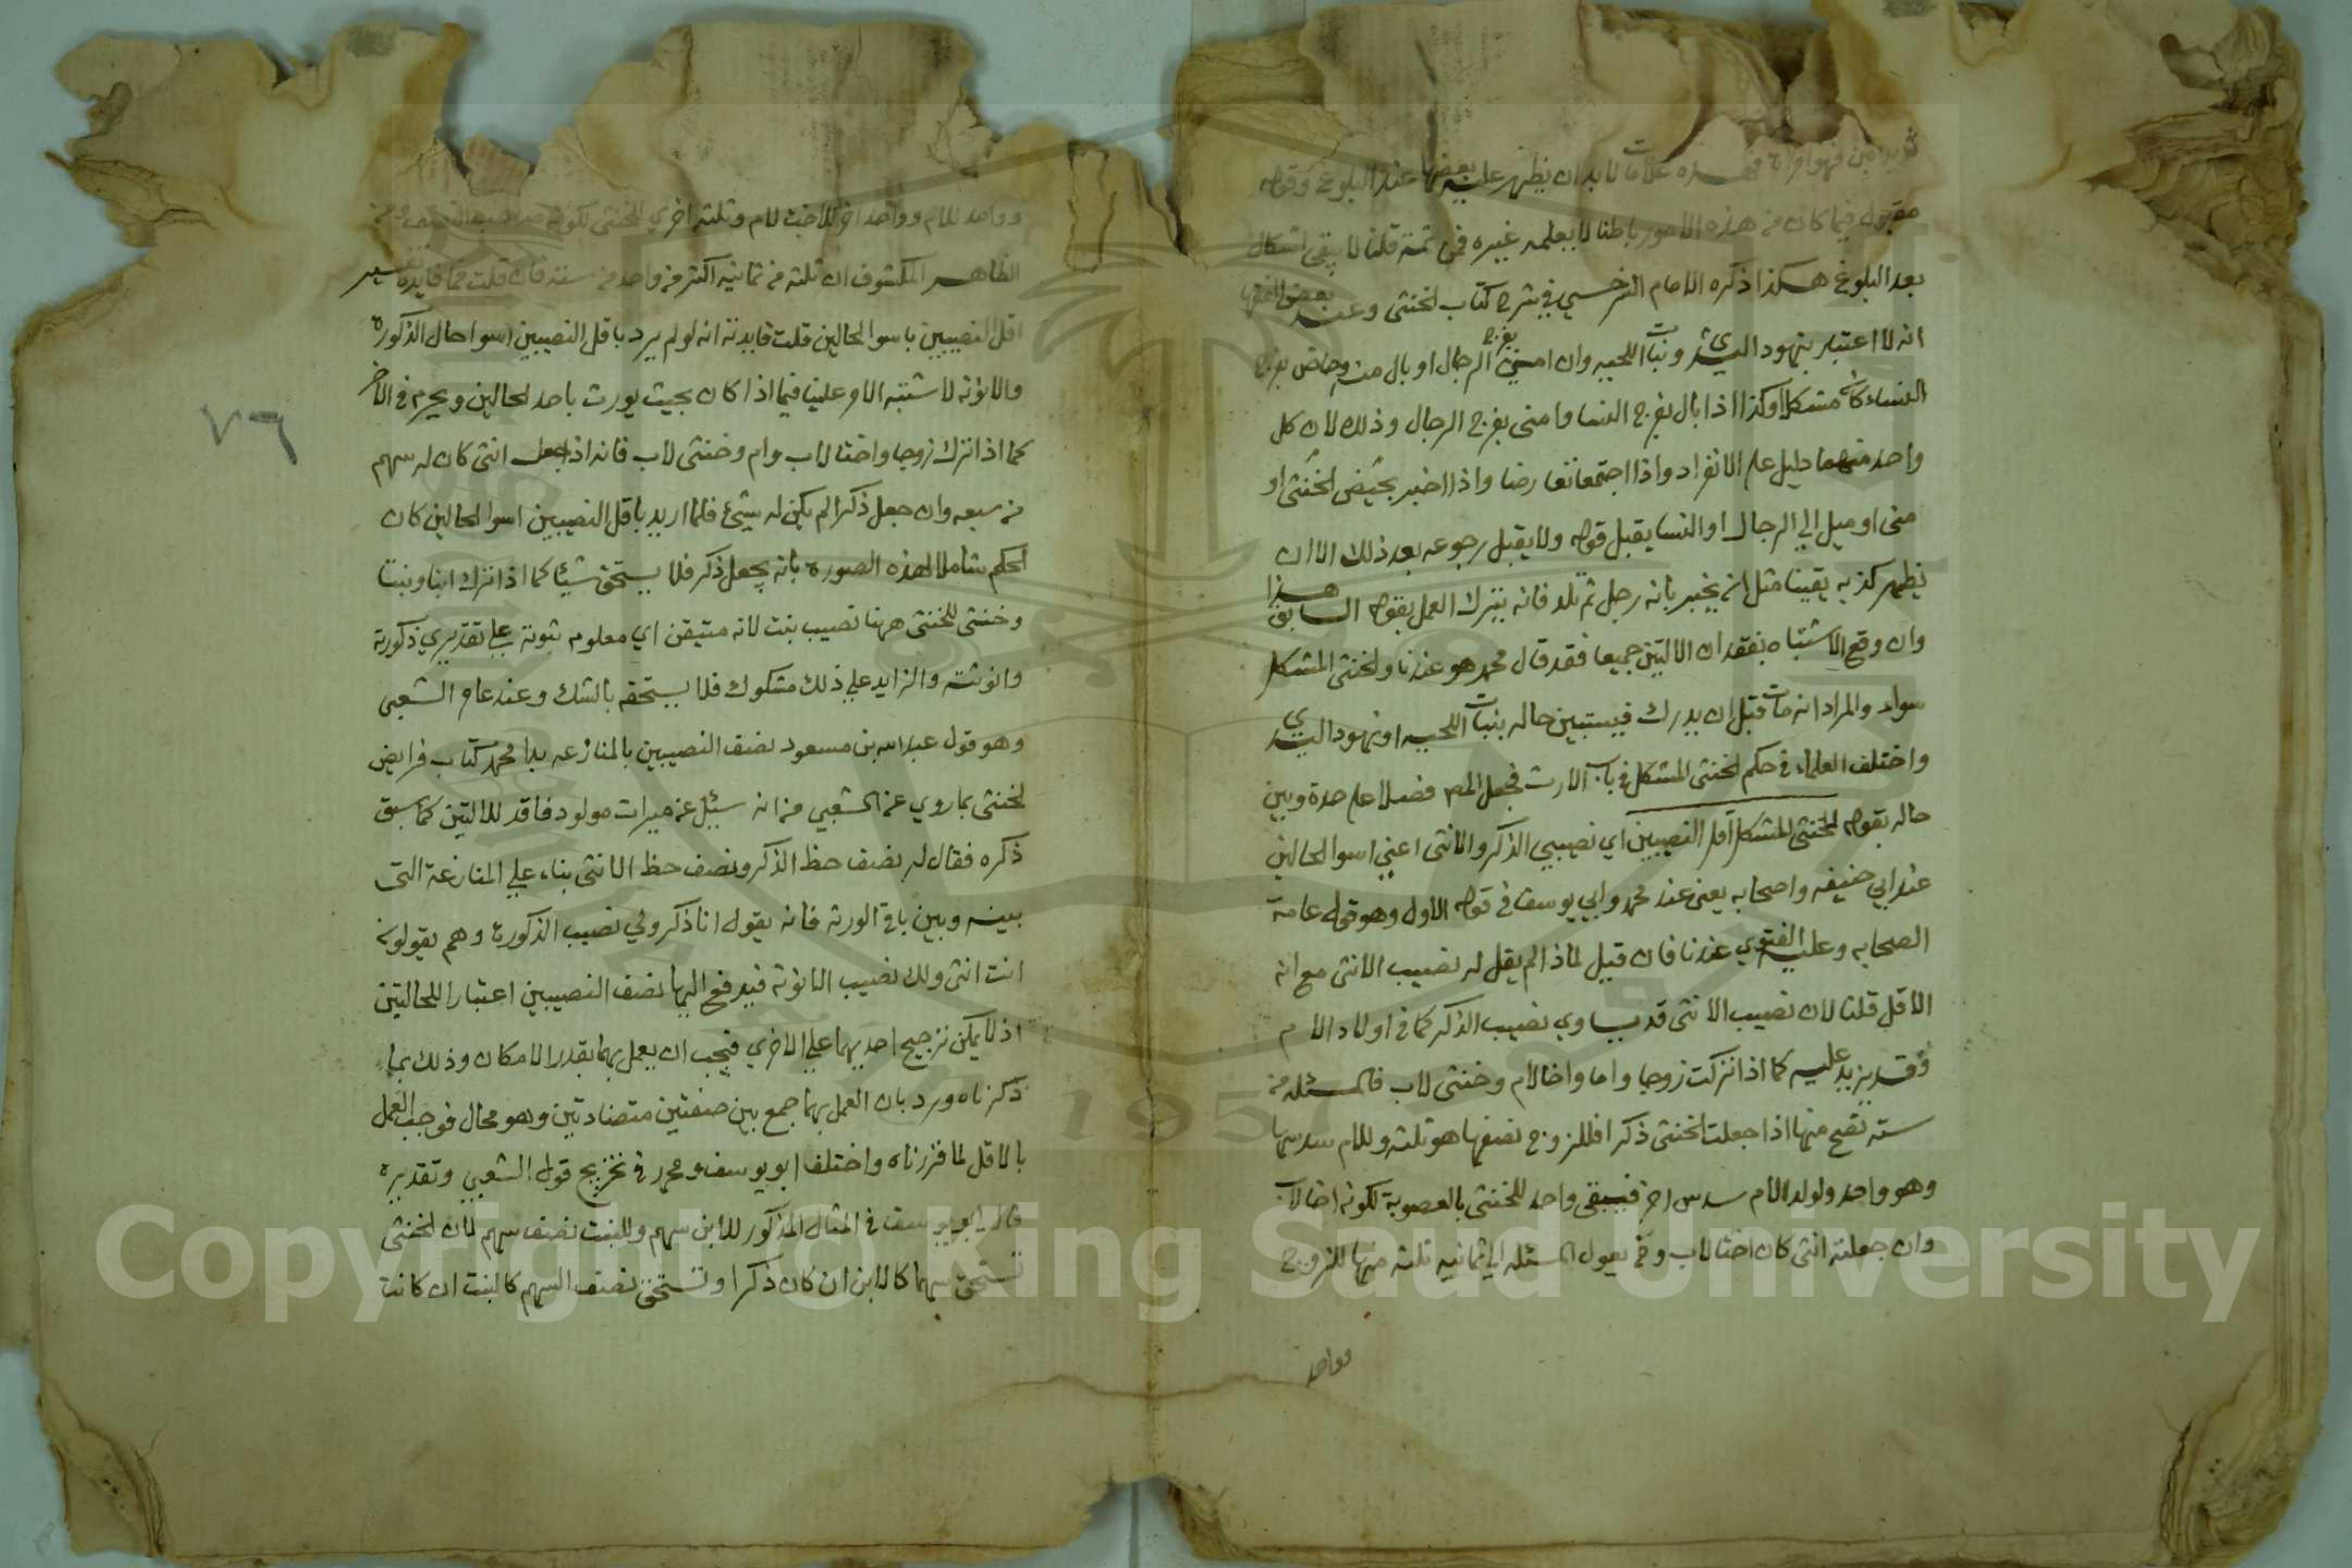 فهو امراة فهذه علامات لابد ان يظهر عليه بعضها عند البلوغ وقوله
مقبول فيما كان من هذه الامور باطنا لا يعلمه غيره فمن ثمة قلنا لا يبقى اشكال
بعد البلوغ هكذا ذكره الامام السرخسي في شرح كتاب الخنثى وعند بعض الفقها
انه لا اعتبار بنهود الثدي ونبات اللحيه وان امنى بفرج الرجال او بال منه وحاض بفرج
النساء كان مشكلا وكذا اذا بال بفرج النسا وامنى بفرج الرجال وذلك لان كل
واحد منهما دليل على الانفراد واذا اجتمعا تعارضا واذا اخبر بحيض الخنثى او
منى او ميل الي الرجال او النسا يقبل قوله ولا يقبل رجوعه بعد ذلك الا ان
يظهر كذبه يقينا مثل ان يخبر بانه رجل ثم تلد فانه يترك العمل بقوله السابق هذا
وان وقع الاشتباه بفقدان الالتين جميعا فقد قال محمد هو عندنا والخنثى المشكل
سواء والمراد انه مات قبل ان يدرك فيستبين حاله بنبات اللحيه او نهود الثدي
واختلف العلماء في حكم الخنثى المشكل في باب الارث فجعل المص فصلا على حدة وبين
حاله بقوله للخنثى المشكل اقل النصيبين اي نصيبي الذكر والانثى اعني اسوا الحالين
عند ابي حنيفه واصحابه يعني عند محمد وابي يوسف في قوله الاول وهو قول عامة
الصحابه وعليه الفتوي عندنا فان قيل لماذا لم يقل له نصيب الانثى مع انه
الاقل قلنا لان نصيب الانثى قد يساوي نصيب الذكر كما في اولاد الام
وقد يزيد عليه كما اذا تركت زوجا واما واخا لام وخنثى لاب فالمسئله من
سته تصح منها اذا جعلت الخنثى ذكرا فللزوج نصفها هو ثلثه وللام سدسها
وهو واحد ولولد الام سدس اخر فيبقى واحد للخنثى بالعصوبة لكونه اخا لاب
وان جعلته انثى كان اختا لاب وح يعول المسئله الي ثمانيه ثلثه منها للزوج
وواحد
وواحد للام وواحد اخر للاخت لام وثلثه اخري للخنثى لكونه صاحب النصف ومن
الظاهر المكشوف ان ثلثه من ثمانيه اكثر من واحد من سته فان قلت فما فايدة تفسير
اقل النصيبين باسوا الحالين قلت فايدته انه لو لم يرد باقل النصيبين اسوا حال الذكورة
والانوثه لاشتبه الامر علينا فيما اذا كان بحيث يورث باحد الحالين ويحرم في الاخر
كما اذا ترك زوجا واختا لاب وام وخنثى لاب فانه اذا جعل انثى كان له سهم
من سبعه وان جعل ذكرا لم يكن له شيئ فلما اريد باقل النصيبين اسوا الحالين كان
الحكم شاملا لهذه الصورة بانه يجعل ذكر فلا يستحق شيئا كما اذا ترك ابنا وبنتا
وخنثى للخنثى ههنا نصيب بنت لانه متيقن اي معلوم ثبوته علي تقديري ذكورته
وانوثته والزايد علي ذلك مشكوك فلا يستحقه بالشك وعند عامر الشعبي
وهو قول عبد الله بن مسعود نصف النصيبين بالمنازعه بدا محمد كتاب فرايض
الخنثى بما روي عن الشعبي من انه سئيل عن ميراث مولود فاقد للالتين كما سبق
ذكره فقال له نصف حظ الذكر ونصف حظ الانثى بناء علي المنازعة التى
بينه وبين باقي الورثه فانه يقول انا ذكر ولي نصيب الذكورة وهم يقولون
انت انثى ولك نصيب الانوثه فيدفع اليها نصف النصيبين اعتبارا للحالتين
اذ لا يمكن ترجيح احديهما علي الاخري فيجب ان يعمل بهما بقدر الامكان وذلك بما
ذكرناه ورد بان العمل بهما جمع بين صفتين متضادتين وهو محال فوجب العمل
بالاقل لما قررناه واختلف ابو يوسف ومحمد في تخريج قول الشعبي وتقديره
قال ابو يوسف في المثال المذكور للابن سهم وللبنت نصف سهم لان الخنثى
تستحق سهما كالابن ان كان ذكرا وتستحق نصف السهم كالبنت ان كانت
٧٦
Copyright © King Saud University
1957